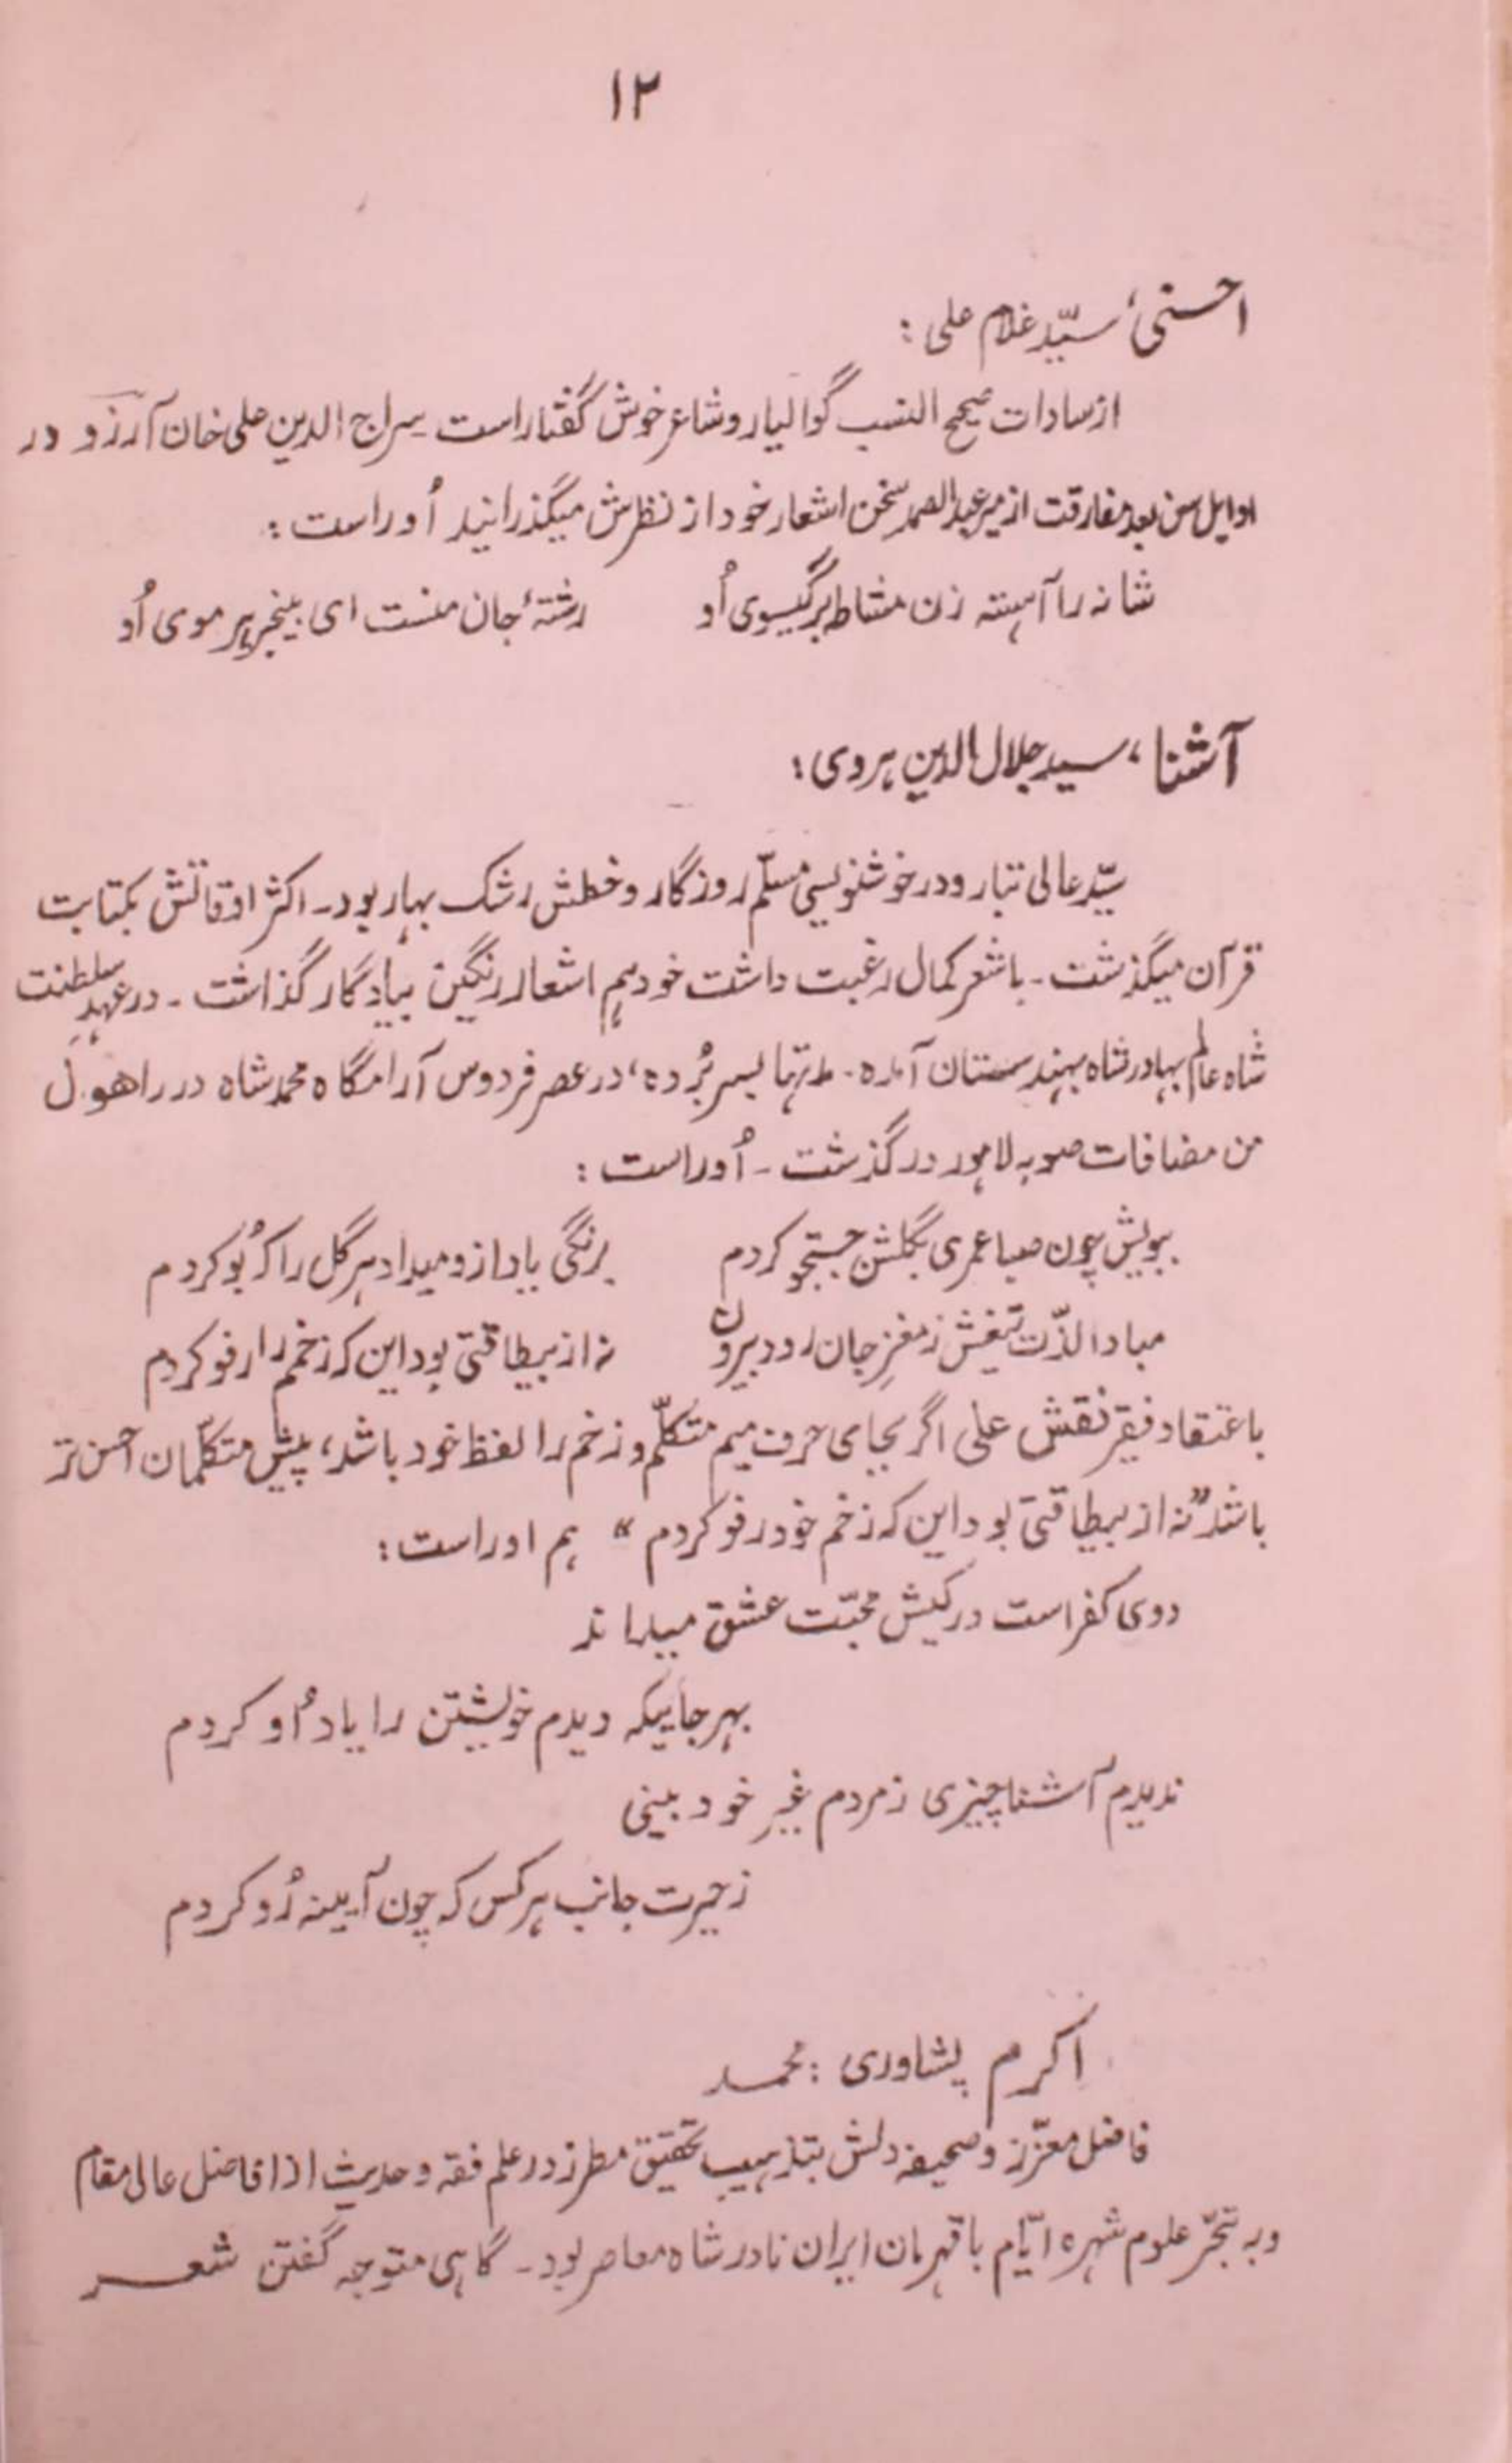 ۱۲
احسنی، سیّد غلام علی :
از سادات صحیح النسب گوالیار و شاعر خوش گفتار است سراج الدین علی خان آرزو در
اوایل سن بعد مفارقت از میر عبدالصمد سخن اشعار خود از نظرش میگذرانید اُوراست :
شانه را آهسته زن مشاطه بر گیسوی اُو رشتهٔ جان منست ای بیخبر هر موی اُو
آشنا، سید جلال الدین هروی :
سیّد عالی تبار و در خوشنویسی مسلّم روزگار و خطش رشک بهار بود۔ اکثر اوقاتش بکتابت
قرآن میگذشت۔ با شعر کمال رغبت داشت خود هم اشعار رنگین بیادگار گذاشت۔ در عهدِ سلطنت
شاه عالم بهادر شاه بهندستان آمده۔ مدتها بسر بُرده، در عصر فردوس آرامگاه محمد شاه در راهول
من مضافات صوبه لاهور در گذشت۔ اُوراست :
ببویش چون صبا عمری بگلشن جستجو کردم برنگی یاد ازو میداد هر گل را که بُو کردم
مبادا لذّت تیغش ز مغزِ جان رود بیرون نه از بیطاقتی بود این که زخم را رفو کردم
باعتقاد فقیر نقش علی اگر بجای حرف میم متکلّم و زخم را لفظ خود باشد، پیش متکلّمان احسن تر
باشد "نه از بیطاقتی بود این که زخم خود رفو کردم" هم اوراست :
دوی کفر است در کیش محبّت عشق میداند
بهر جاییکه دیدم خویشتن را یاد اُو کردم
ندیدم آشنا چیزی ز مردم غیرِ خود بینی
ز حیرت جانب هر کس که چون آیینه رُو کردم
اکرم پشاوری : محمد
فاضل معزّز و صحیفه دلش بتذهیب تحقیق مطرز در علم فقه و حدیث از افاضل عالی مقام
و به تبحّر علوم شهره ایّام با قهرمان ایران نادر شاه معاصر بود۔ گاهی متوجه گفتن شعر